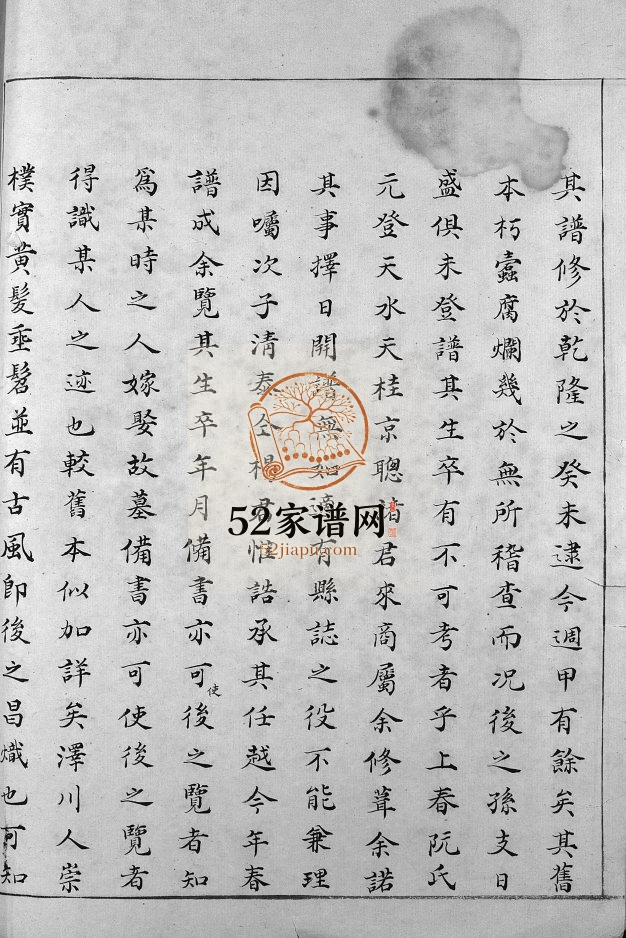 其譜修於乾隆之癸未逮今週甲有餘矣其舊
本朽蠹腐爛幾於無所稽查而况後之孫支日
盛俱未登譜其生卒有不可考者乎上春阮氏
元登天水天桂京聰諸君來商屬余修葺余諾
其事擇日開譜無如適有縣誌之役不能兼理
因囑次子清泰仝楊君惟誥承其任越今年春
譜成余覽其生卒年月備書亦可使後之覽者知
爲某時之人嫁娶故墓備書亦可使後之覽者
得識某人之迹也較舊本似加詳矣澤川人崇
樸實黃髮垂髫並有古風卽後之昌熾也可知
52家谱网
52jiapu.com